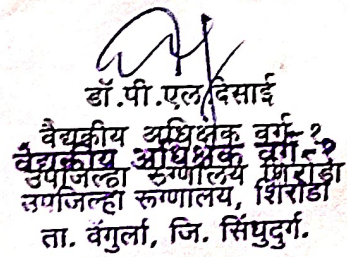 डॉ.पी.एल.देसाई
वैद्यकीय अधिक्षक वर्ग-१
वैद्यकीय अधिक्षक वर्ग-१
उपजिल्हा रुग्णालय शिरोडा
उपजिल्हा रूग्णालय, शिरोडा
ता. वेंगुर्ला, जि. सिंधुदुर्ग.